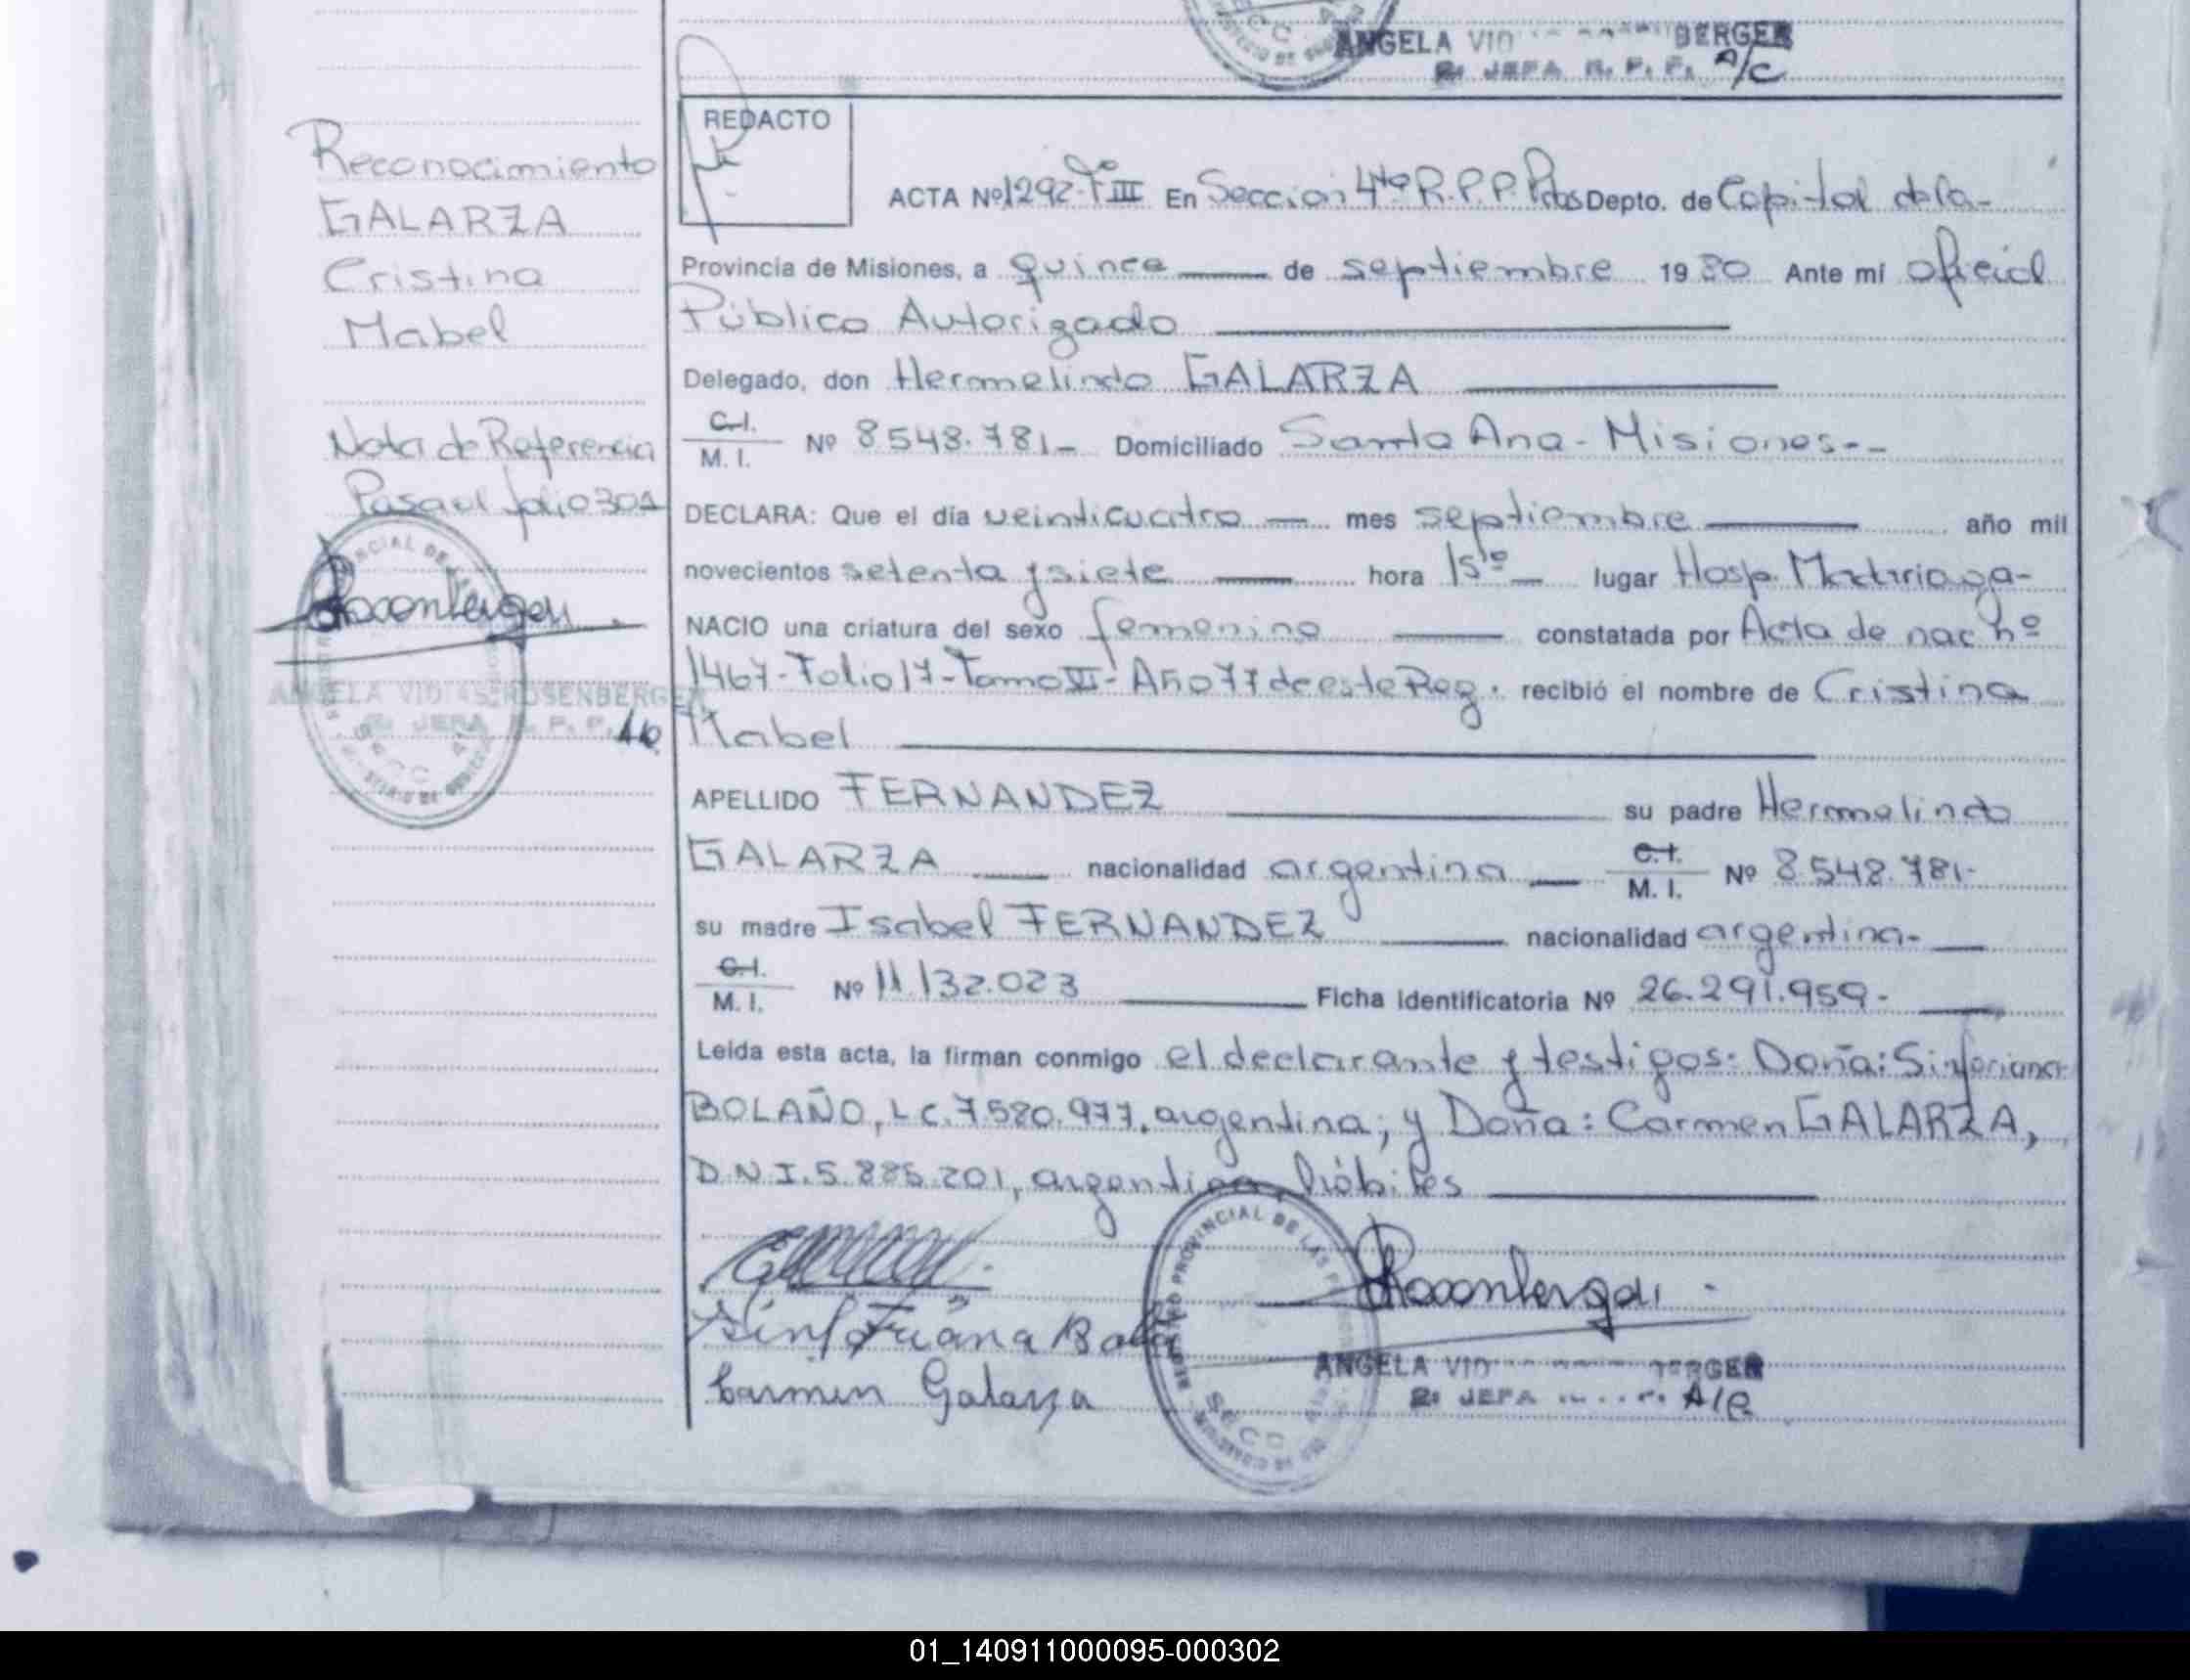 ANGELA VID BERGER
2: JEFA R. P. P. A/C
REDACTO
Reconocimiento
GALARZA
Cristina
Mabel
Nota de Referencia
Pasa al folio 301
ANGELA VID ROSENBERGER
2: JEFA R. P. P.
ACTA Nº 1292-Tº III En Sección 4ta R.P.P. Pdas Depto. de Capital de la-
Provincia de Misiones, a quince de septiembre 1980 Ante mí oficial
Público Autorizado
Delegado, don Hermelindo GALARZA
C.I.
M. I. Nº 8.548.781- Domiciliado Santa Ana - Misiones--
DECLARA: Que el día veinticuatro mes septiembre año mil
novecientos setenta y siete hora 15¹⁰ lugar Hosp. Madariaga-
NACIO una criatura del sexo femenino constatada por Acta de nac nº
1467-Folio 17-Tomo VI-Año 77 de este Reg. recibió el nombre de Cristina
Mabel
APELLIDO FERNANDEZ su padre Hermelindo
GALARZA nacionalidad argentina C.I.
M. I. Nº 8.548.781-
su madre Isabel FERNANDEZ nacionalidad argentina-
C.I.
M. I. Nº 11.132.023 Ficha Identificatoria Nº 26.291.959-
Leída esta acta, la firman conmigo el declarante y testigos: Doña: Sinforiana
BOLAÑO, L C. 7.580.977, argentina; y Doña: Carmen GALARZA,
D.N.I. 5.885.201, argentina, hábiles
Sinforiana
Carmen Galarza
ANGELA VID BERGER
2: JEFA
SECC
01_140911000095-000302